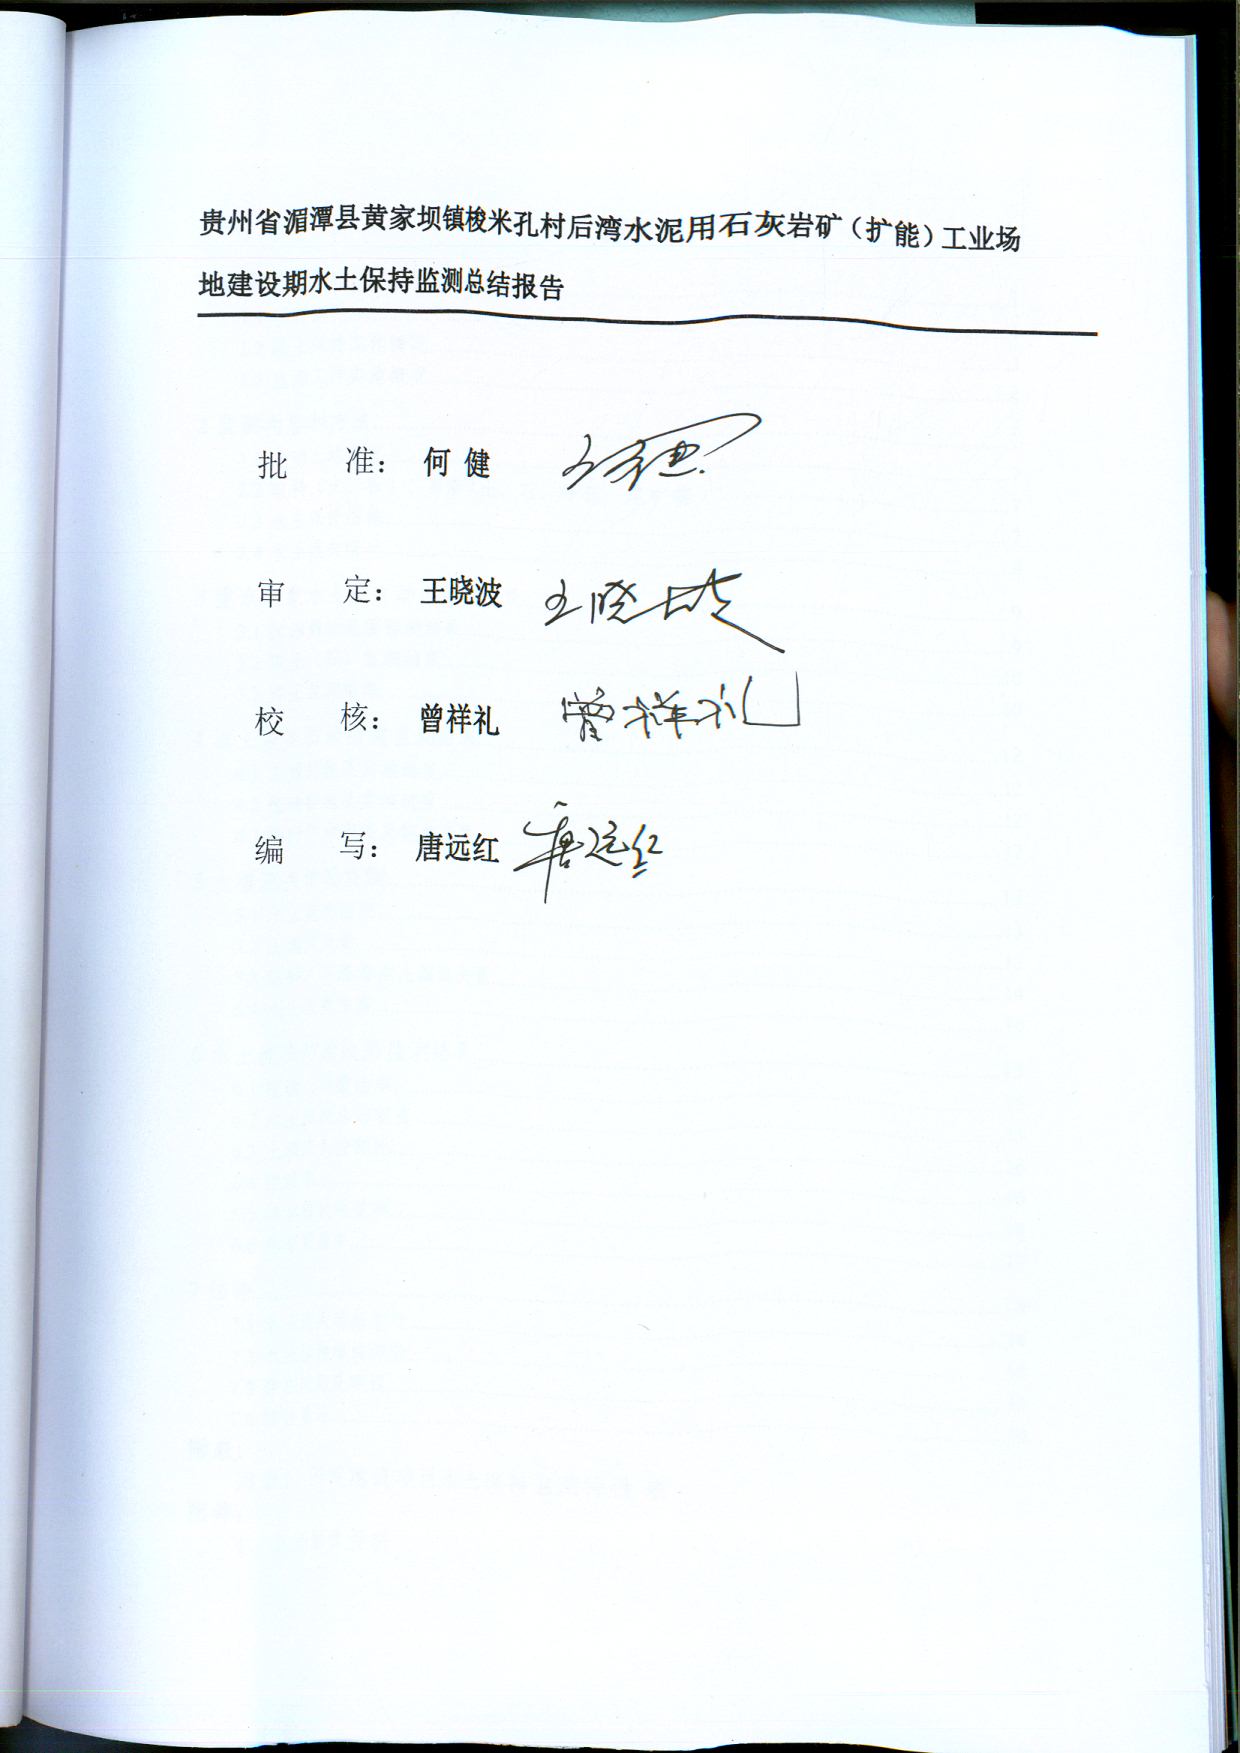 贵州省湄潭县黄家坝镇梭米孔村后湾水泥用石灰岩矿（扩能）工业场
地建设期水土保持监测总结报告
批 准： 何 健
审 定： 王晓波 王晓波
校 核： 曾祥礼 曾祥礼
编 写： 唐远红 唐远红